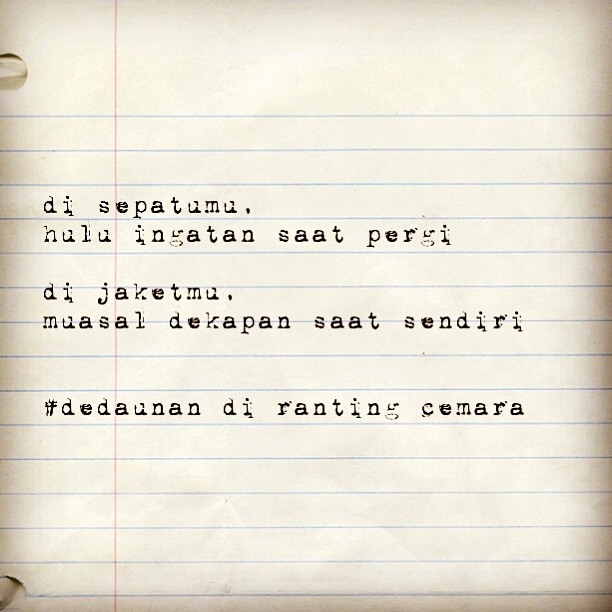 di sepatumu,
hulu ingatan saat pergi
di jaketmu,
muasal dekapan saat sendiri
#dedaunan di ranting cemara